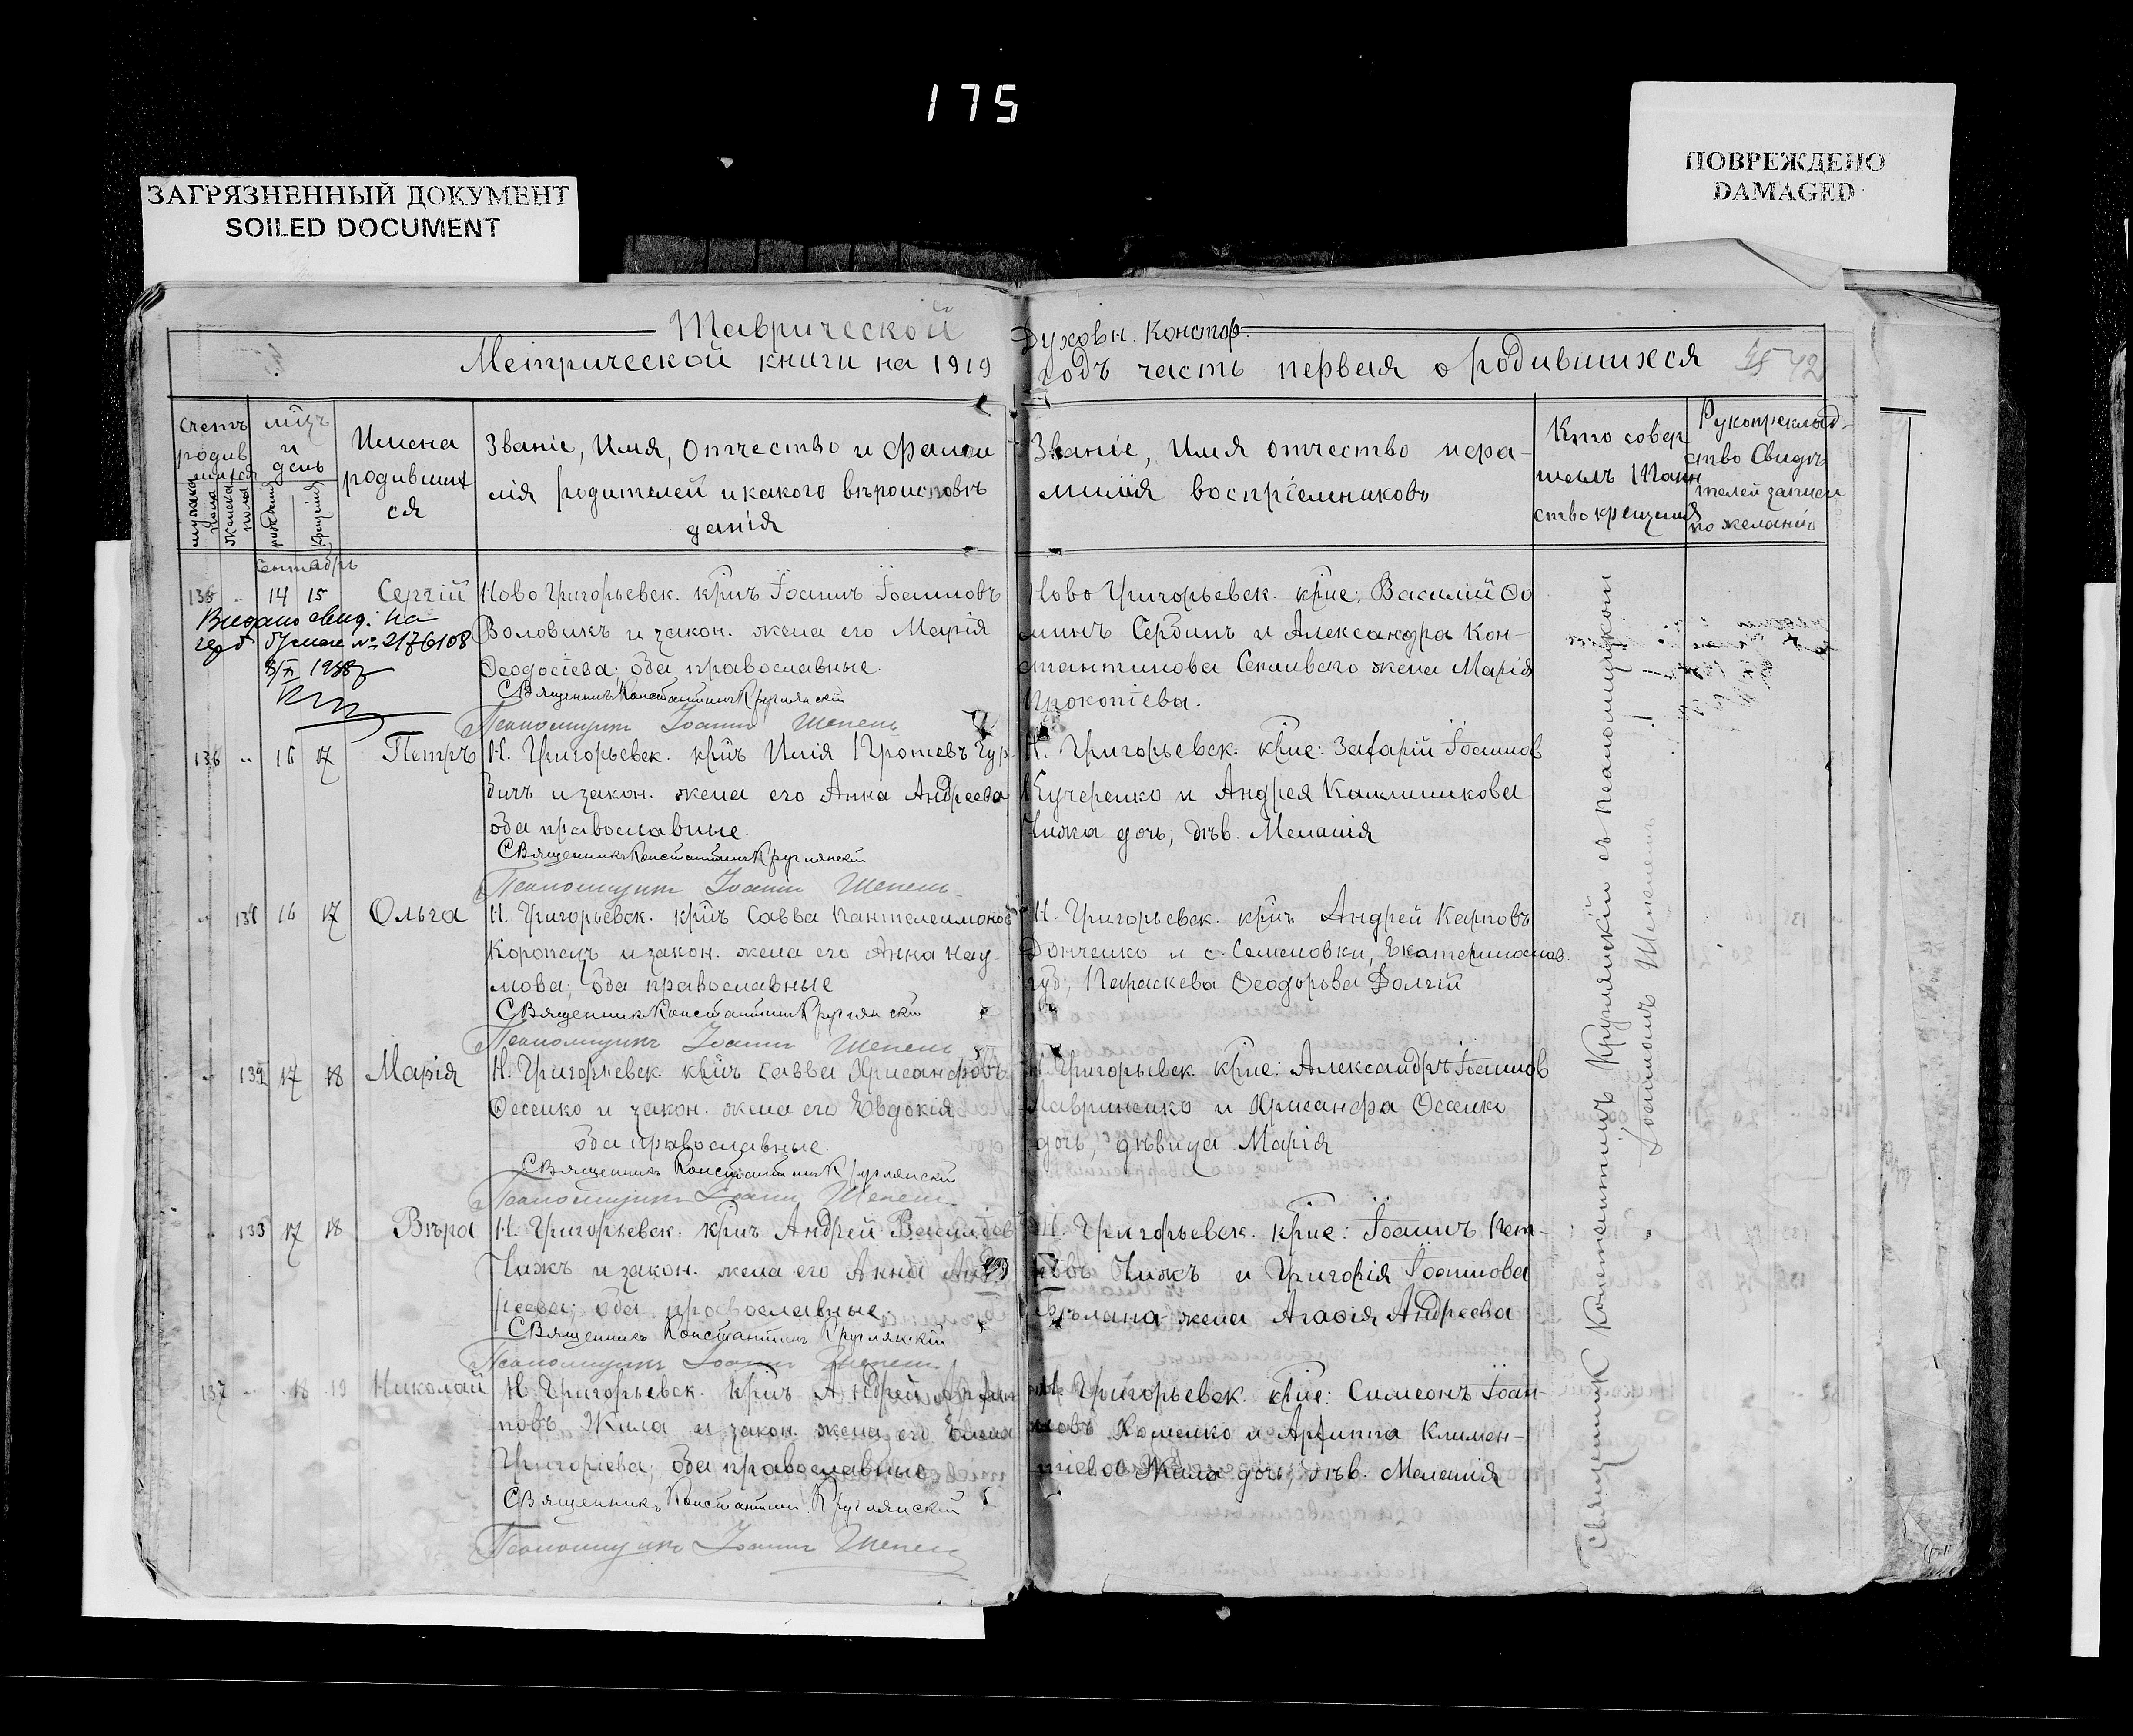 175
ЗАГРЯЗНЕННЫЙ ДОКУМЕНТ
SOILED DOCUMENT
ПОВРЕЖДЕНО
DAMAGED
Таврической Духовн. Констор.
Метрической книги на 1919 годъ часть первая о родившихся 42
Счетъ родив
мѣцъ и день
Имена родивших ся
Званіе, Имя, Отчество и Фами
лія родителей и какого вѣроисповѣ
данія
Званіе, Имя отчество и фа-
милія воспріемниковъ
Кто совер
шилъ Таин
ство крещенія
Рукоприклад-
ство Свидѣ
телей записи
по желанію
Сентябрь
135 14 15 Сергій
Ново Григорьевск. кр͠нъ Іоаннъ Іоанновъ
Воловикъ и закон. жена его Марія
Ѳеодосіева; оба православные.
Священникъ Константинъ Круглянскій
Псаломщикъ Іоаннъ Шепель
Ново Григорьевск. кр͠не: Василій Ѳо
минъ Сербинъ и Александра Кон-
стантинова жена Марія
Прокопіева.
Видано свид. на
№ 2176108
136 16 17 Петръ
Н. Григорьевск. кр͠нъ Илія
и закон. жена его Анна Андреева
оба православные.
Священникъ Константинъ Круглянскій
Псаломщикъ Іоаннъ Шепель
Н. Григорьевск. кр͠не: Захарій Іоаннов
Кучеренко и Андрея Каллиникова
Чижа дочь, дѣв. Меланія
16 17 Ольга
Н. Григорьевск. кр͠нъ Савва Пантелеимонов
и закон. жена его Анна Нау-
мова; оба православные
Священникъ Константинъ Круглянскій
Псаломщикъ Іоаннъ Шепель
Н. Григорьевск. кр͠нъ Андрей Карповъ
Донченко и с. Семеновки, Екатеринослав.
губ., Параскева Ѳеодорова Долгій
17 18 Марія
Н. Григорьевск. кр͠нъ Савва Хрисанфовъ
Ѳесенко и закон. жена его Евдокія
оба православные.
Священникъ Константинъ Круглянскій
Псаломщикъ Іоаннъ Шепель
Н. Григорьевск. кр͠не: Александръ Іоаннов
Лавриненко и Хрисанфа Ѳесенко
дочь, дѣвица Марія
133 17 18 Вѣра
Н. Григорьевск. кр͠нъ Андрей Васильев
Чижъ и закон. жена его Анна Анд
реева; оба православные.
Священникъ Константинъ Круглянскій
Псаломщикъ Іоаннъ Шепель
Н. Григорьевск. кр͠не: Іоаннъ Пет-
ровъ Чижъ и Григорія Іоаннова
жена Агафія Андреева
137 18 19 Николай
Н. Григорьевск. кр͠нъ Андрей
повъ Жила и закон. жена его Елена
Григоріева; оба православные
Священникъ Константинъ Круглянскій
Псаломщикъ Іоаннъ Шепель
Н. Григорьевск. кр͠не: Симеонъ Іоан-
новъ Хоменко и Архиппа Климен-
тіева Жила дочь, дѣв. Меланія
Священник Константинъ Круглянскій съ псаломщиком
Іоанномъ Шепелемъ